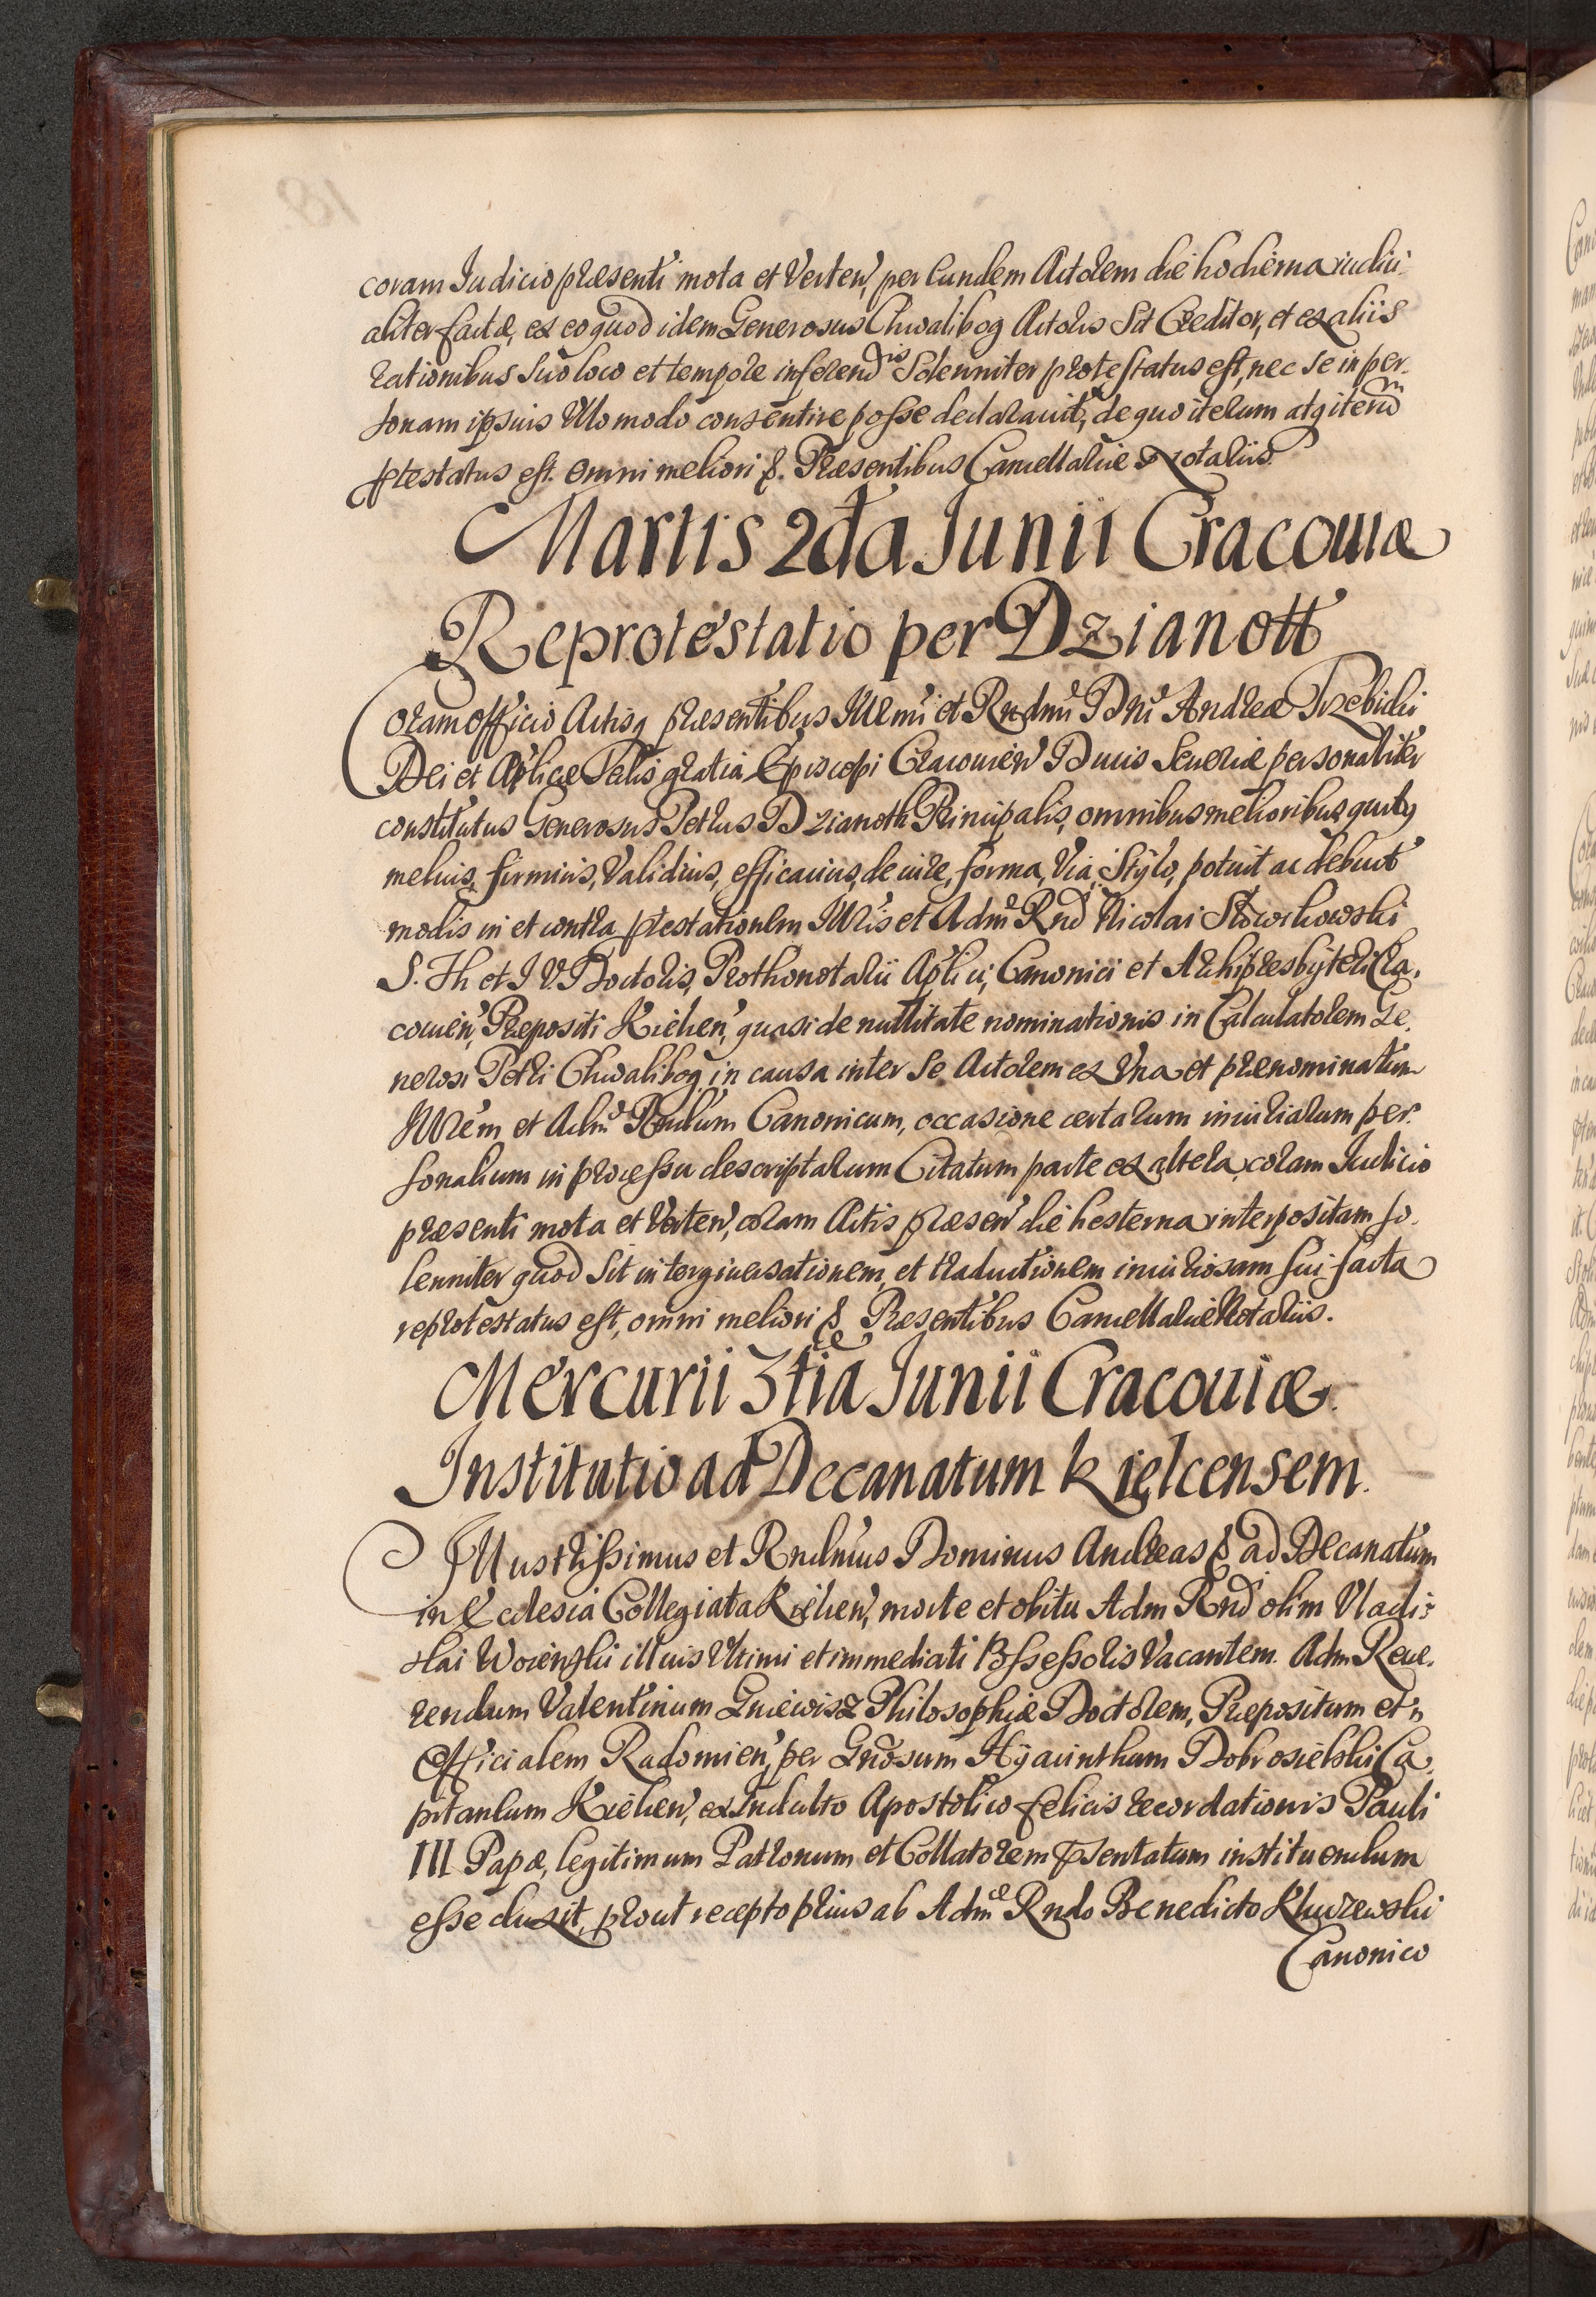 coram Iudicio præsenti mota et Verten, per Eundem Actorem die hodierna iudici-
aliter factæ, ex eo quod idem Generosus Chwalibog Actoris Sit Creditor, et ex aliis
rationibus Suo loco et tempore inferendis Solenniter protestatus est, nec se in per-
sonam ipsius Ullo modo consentire posse declaravit, de quo iterum atq iterum
ptestatus est. omni meliori &. Præsentibus Cancellariæ Notariis.
Martis 2da Junii Cracouiæ
Reprotestatio per Dzianott
Coram officio Actisq præsentibus Illmi et Rndmi Dni Andreæ Trzebicki
Dei et Aplicæ Sedis gratia Episcopi Cracouien Ducis Seueriæ personaliter
constitutus Generosus Petrus Dzianoth Principalis, omnibus melioribus quibq
melius, firmius, Validius, efficacius, de iure, forma, Via, Stylo, potuit ac debuit
modis in et contra ptestationem Illris et Adm Rnd Nicolai Słowikowski
S. Th et I V. Doctoris, Prothonotarii Aplici, Canonici et Archipresbyteri Cra-
couien, Præpositi Kielcen, quasi de nullitate nominationis in Calculatorem Ge-
nerosi Petri Chwalibog in causa inter Se Actorem ex Una et prænominatum
Illrem et Adm Rndum Canonicum, occasione certarum iniuriarum per-
sonalium in processu descriptarum Citatum parte ex altera, coram Iudicio
præsenti mota et Verten, coram Actis præsen die hesterna interpositam so-
lenniter quod Sit in tergiuersationem, et traductionem iniuriosam sui facta
reprotestatus est, omni meliori & Præsentibus Cancellariæ Notariis.
Mercurii 3tia Junii Cracouiæ.
Institutio ad Decanatum Kielcensem.
Illustrissimus et Rndmus Dominus Andreas & ad Decanatum
in Ecclesia Collegiata Kielcen, morte et obitu Adm Rnd olim Vladis-
lai Worenski illius Ultimi et immediati Possessoris Vacantem. Adm Reue-
rendum Valentinum Gniewisz Philosophiæ Doctorem, Præpositum et
Officialem Radomien, per Gnosum Hyacinthum Dobrosielski Ca-
pitaneum Kielcen, ex Indulto Apostolico felicis recordationis Pauli
III Papæ, legitimum Patronum et Collatorem psentatum instituendum
esse duxit, prout recepto prius ab Adm Rndo Benedicto Kluczewski
Canonico